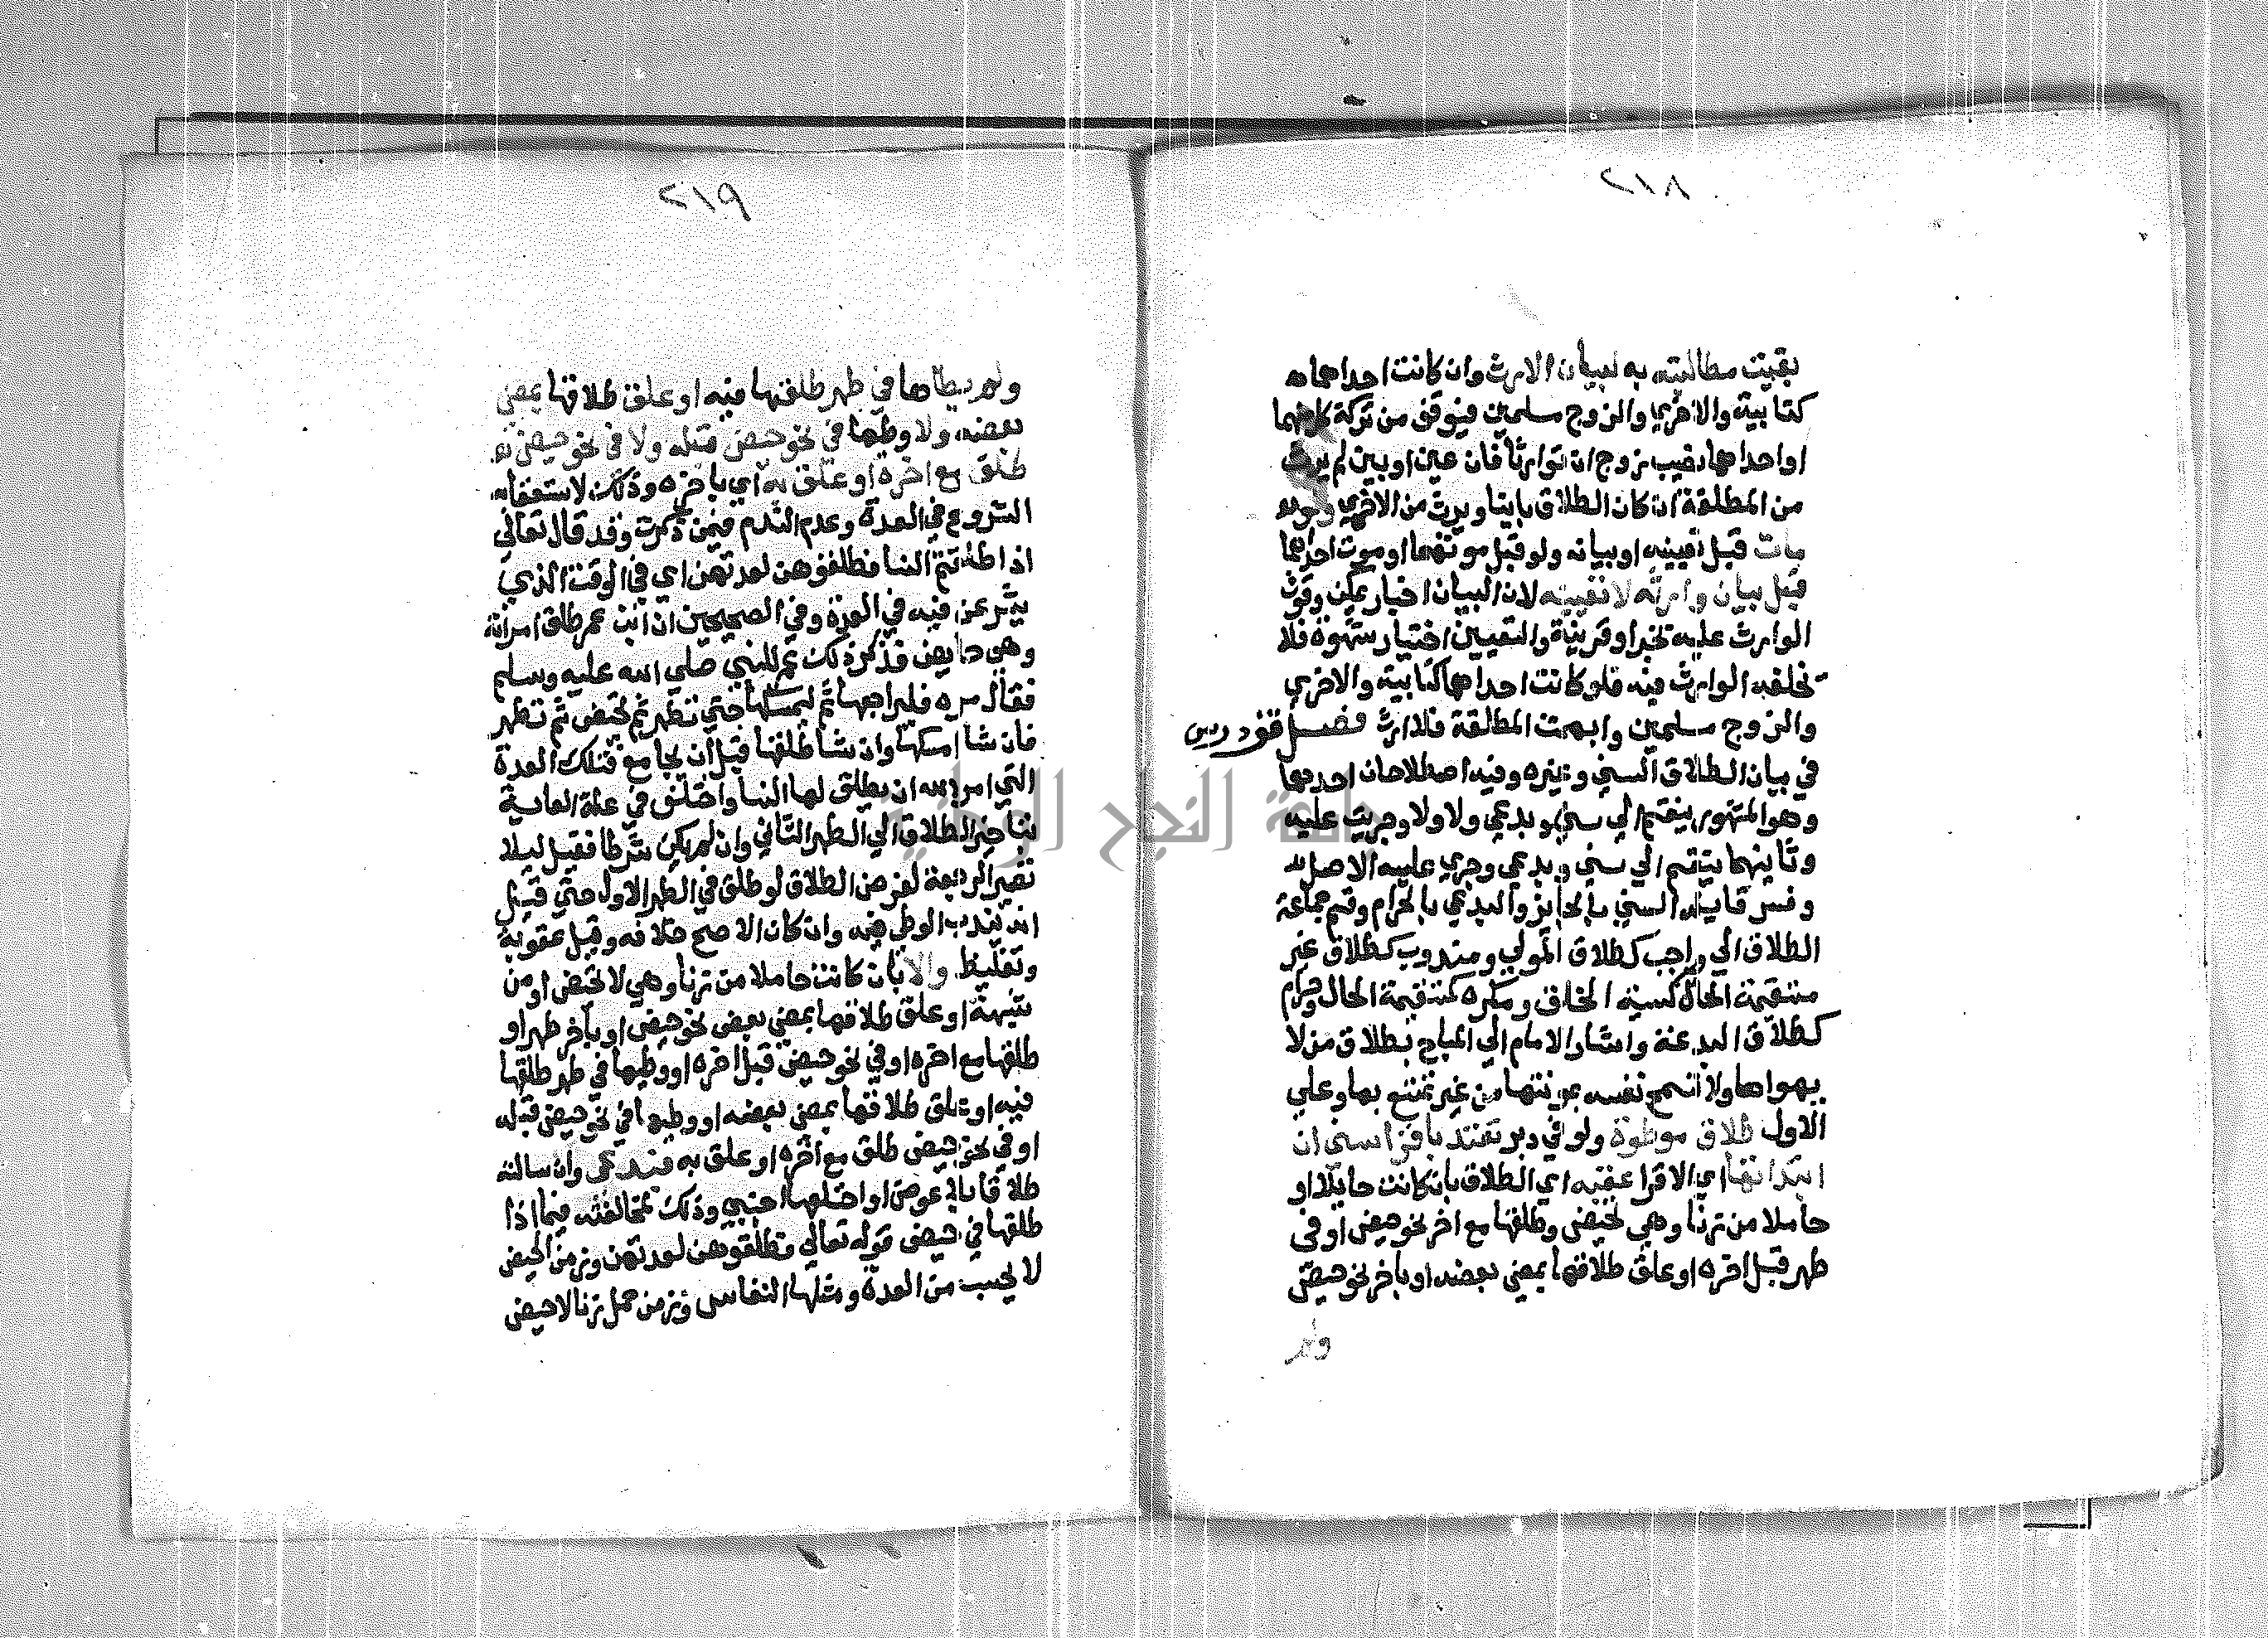 ٢١٨
بقيت مطالبته به لبيان الارث وان كانت احداهما
كتابية والاخري والزوج مسلمين فيوقف من تركة كل منهما
او احداهما نصيب زوج ان توارثا فان عين او بين لم يرث
من المطلقة ان كان الطلاق باينا ويرث من الاخري ولو
مات قبل تعيينه او بيانه ولو قبل موتهما او موت احداهما
قبل بيان وارثه لا تعيينه لان البيان اخبار يمكن وقوف
الوارث عليه بخبر او قرينة والتعيين اختيار شهوة فلا
يخلفه الوارث فيه فلو كانت احداهما كتابية والاخري
والزوج مسلمين وابهمت المطلقة فلا ارث فصل
في بيان الطلاق السني وغيره وفيه اصطلاحان احدهما
وهو المشهور ينقسم الي سني وبدعي ولا ولا وجريت عليه
وثانيهما ينقسم الي سني وبدعي وجري عليه الاصل
وفسر قايله السني بالجايز والبدعي بالحرام وقسم جماعة
الطلاق الي واجب كطلاق المولي ومندوب كطلاق غير
مستقيمة الحال كسيئة الخلق ومكره كمستقيمة الحال وحرام
كطلاق البدعة واشار الامام الي المباح بطلاق من لا
يهواها ولا تسمح نفسه بمونتها من غير تمتع بها وعلي
الاول طلاق موطوة ولو في دبر تعتد باقرا سني ان
ابتداتها اي الاقرا عقبه اي الطلاق بان كانت حايلا او
حاملا من زنا وهي تحيض وطلقها مع اخر نحو حيض او في
طهر قبل اخره او علق طلاقها بمضي بعضه او باخر نحو حيض
ولم
٢١٩
ولم يطاها في طهر طلقها فيه او علق طلاقها بمضي
بعضه ولا وطيها في نحو حيض قبله ولا في نحو حيض
طلق مع اخره او علق به اي باخره وذلك لاستعقابه
الشروع في العدة وعدم الندم فيمن ذكرت وقد قال تعالي
اذا طلقتم النسا فطلقوهن لعدتهن اي في الوقت الذي
يشرعن فيه في العدة وفي الصحيحين ان ابن عمر طلق امراته
وهي حايض فذكر ذلك عمر للنبي صلي الله عليه وسلم
فقال مره فليراجعها ثم ليمسكها حتي تطهر ثم تحيض ثم تطهر
فان شا امسكها وان شا طلقها قبل ان يجامع فتلك العدة
التي امر الله ان يطلق لها النسا واختلف في علة الغاية
بتاخير الطلاق الي الطهر الثاني وان لم يكن شرطا فقيل ليلا
تصير الرجعة لغرض الطلاق لو طلق في الطهر الاول حتي قيل
انه يندب الوطي فيه وان كان الاصح خلافه وقيل عقوبة
وتغليظ والا بان كانت حاملا من زنا وهي لا تحيض او من
شبهة او علق طلاقها بمضي بعض نحو حيض او باخر طهر او
طلقها مع اخره او في نحو حيض قبل اخره او وطيها في طهر طلقها
فيه او علق طلاقها بمضي بعضه او وطيها في نحو حيض قبله
او في نحو حيض طلق مع اخره او علق به فبدعي وان سالته
طلاقا بلا عوض او اختلعها اجنبي وذلك لمخالفته فيما اذا
طلقها في حيض قوله تعالي فطلقوهن لعدتهن وزمن الحيض
لا يحسب من العدة ومثلها النفاس وزمن حمل زنا لا حيض
جامعة النجاح الوطنية